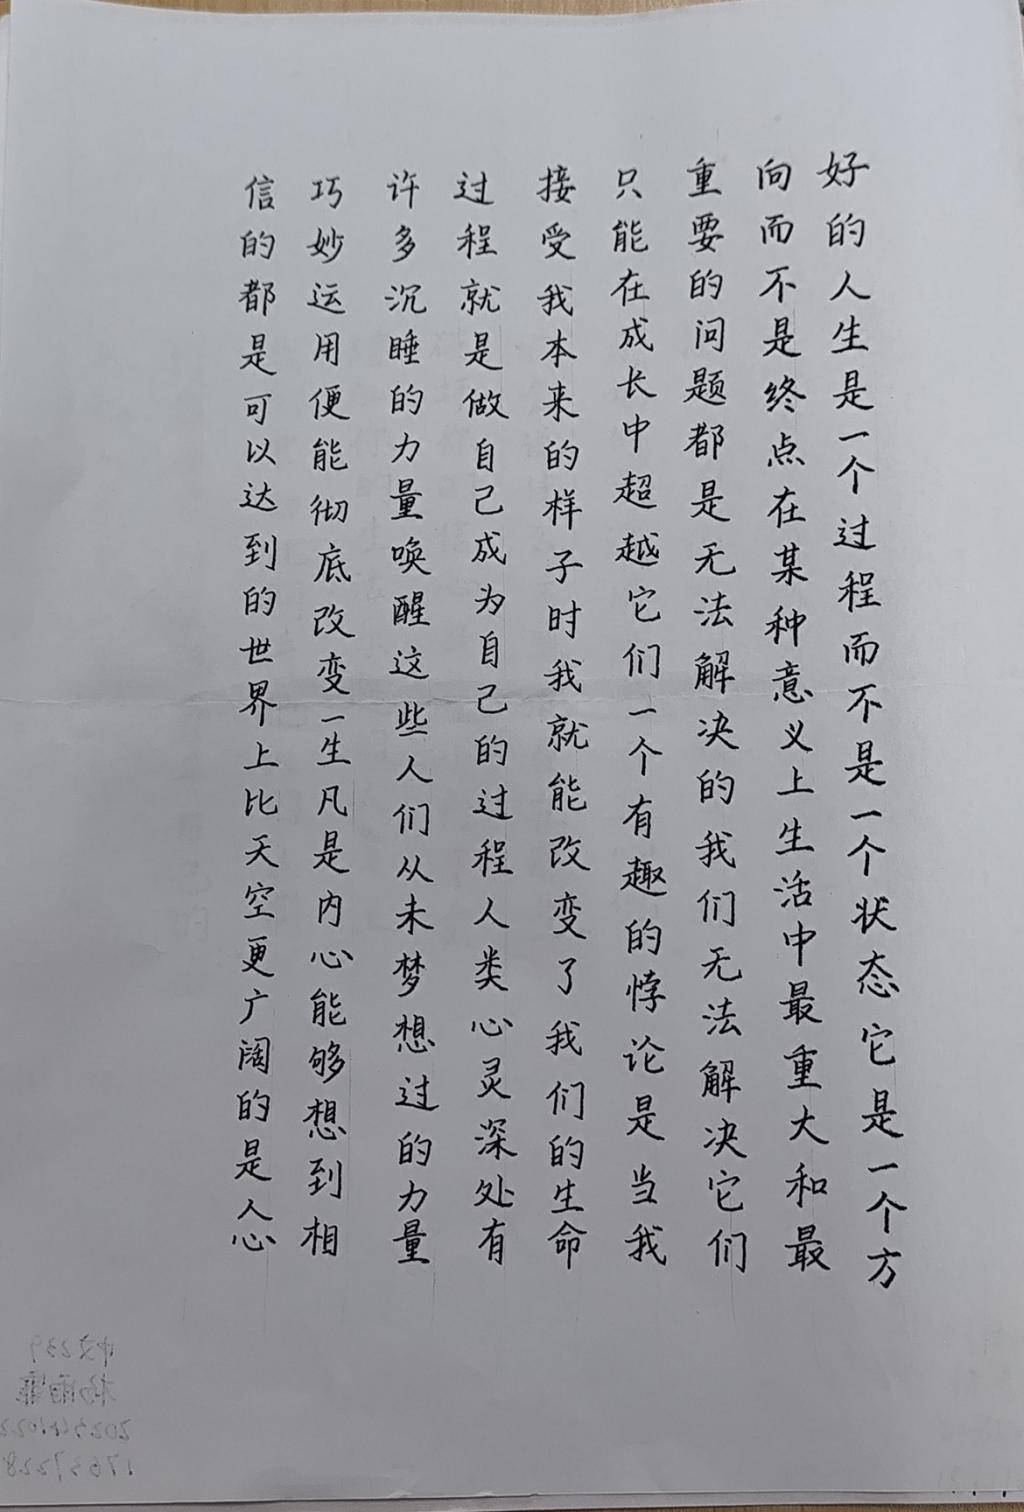 好的人生是一个过程而不是一个状态它是一个方
向而不是终点在某种意义上生活中最重大和最
重要的问题都是无法解决的我们无法解决它们
只能在成长中超越它们一个有趣的悖论是当我
接受我本来的样子时我就能改变了我们的生命
过程就是做自己成为自己的过程人类心灵深处有
许多沉睡的力量唤醒这些人们从未梦想过的力量
巧妙运用便能彻底改变一生凡是内心能够想到相
信的都是可以达到的世界上比天空更广阔的是人心
中文239